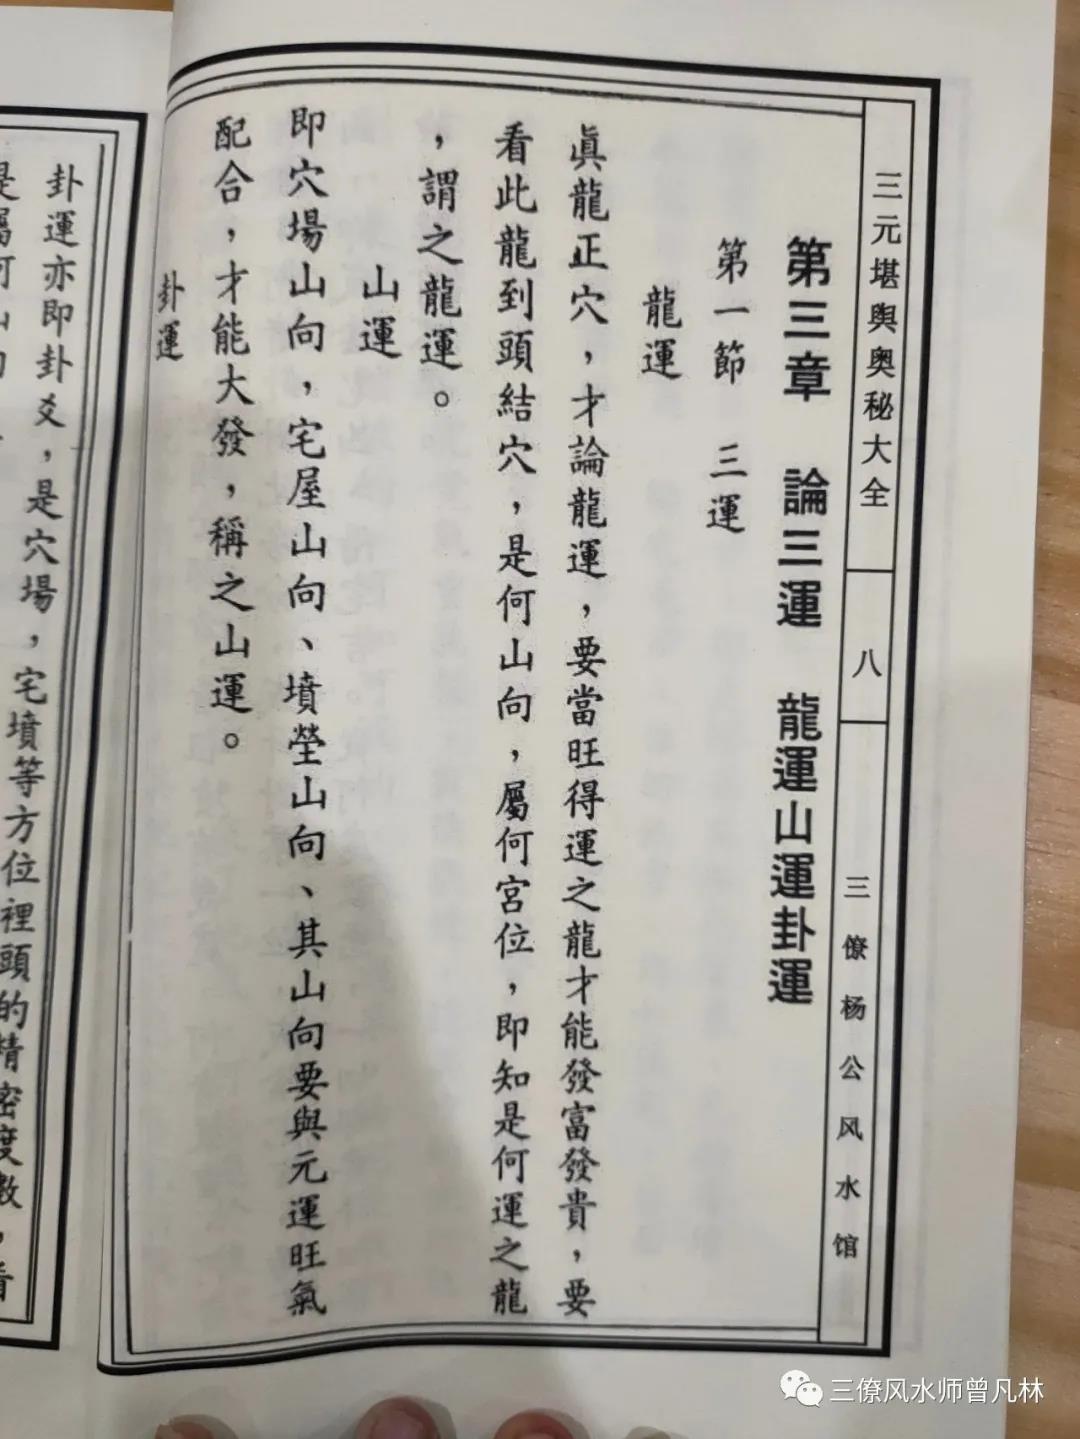 三元堪輿奧秘大全
八
三僚杨公风水馆
第三章 論三運 龍運山運卦運
第一節 三運
龍運
眞龍正穴，才論龍運，要當旺得運之龍才能發富發貴，要
看此龍到頭結穴，是何山向，屬何宮位，即知是何運之龍
，謂之龍運。
山運
即穴場山向，宅屋山向、墳塋山向、其山向要與元運旺氣
配合，才能大發，稱之山運。
卦運
卦運亦即卦爻，是穴場，宅墳等方位裡頭的精密度數，看
是屬何山
三僚风水师曾凡林